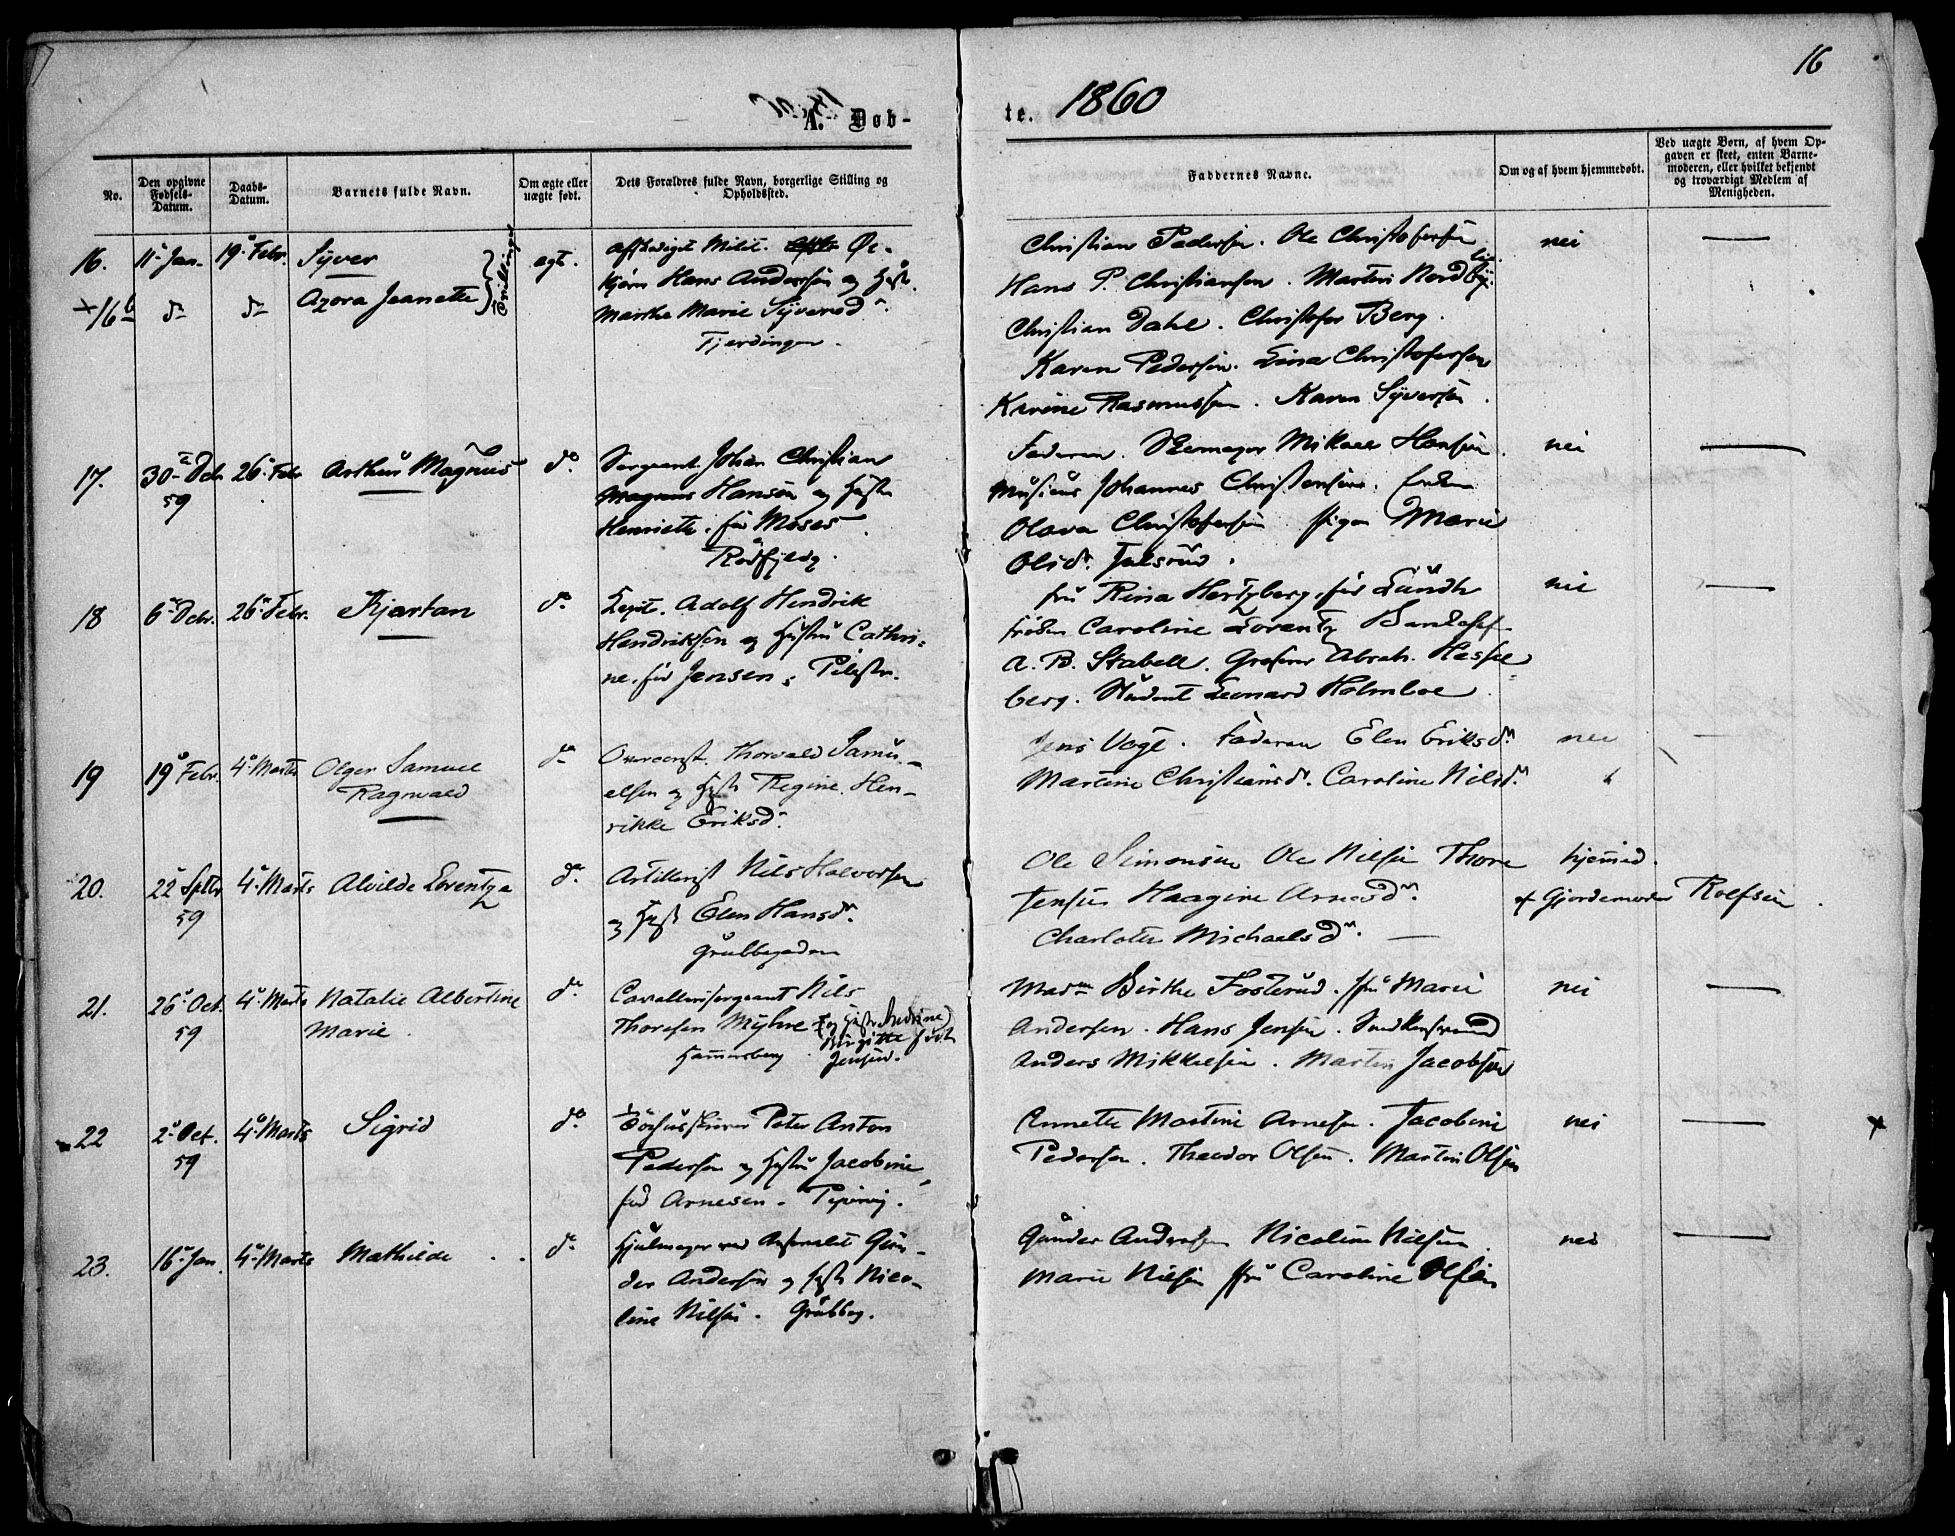 16
A. Døb-
te. 1860
No.
Den opgivne Fødsels-Datum.
Daabs-Datum.
Barnets fulde Navn.
Om ægte eller uægte født.
Dets Forældres fulde Navn, borgerlige Stilling og Opholdssted.
Faddernes Navne.
Om og af hvem hjemmedøbt.
Ved uægte Børn, af hvem Op-
gaven er skeet, enten Barne-
moderen, eller hvilket bekjendt
og troværdigt Medlem af
Menigheden.
16. 11 Jan. 19 Febr. Syver
16b do do Azora Jeanette
Tvillinger
ægt.
Afskediget Milit.
Hans Andersen og Hustr.
Marthe Marie Syversd.
Fjerdingen.
Christian Pedersen. Ole Christofersen
Hans P. Christiansen. Martin Nordby.
Christian Dahl. Christofer Berg.
Karen Pedersen. Lina Christofersen
Karine Rasmussen. Karen Syversen.
nei
17. 30 Dcb 59 26 Febr Arthur Magnus do.
Sergeant Johan Christian
Magnus Hansen og Hustr
Henriette, fød Moses
Rødfyldg.
Faderen. Mikael Hansen.
Musicus Johannes Christensen.
Olava Christofersen pigen Marie
Olsd. Julsrud.
nei
18 6 Dcbr. 26 Febr. Kjartan do.
Capt. Adolf Hendrik
Hendriksen og Hustru Cathri-
ne, fød Jensen, Pilestr.
fru Rina Hertzberg, fød Lundh
frøken Caroline Lorentz
A. B. Stabell. Grosserer Abrah. Hessel
berg. Student Leonard Holmboe.
nei
19 19 Febr. 4 Marts Olger Samuel
Ragnvald
do
Overconst. Thorvald Samu-
elsen og Hustr Regine Hen-
rikke Eriksd.
Jens Vogt. Faderen Elen Eriksd.
Martine Christiansd. Caroline Nilsd.
nei
20. 22 Septbr 59 4 Marts Alvilde Lorentza do.
Artillerist Nils Halvorsen
og Hustr Elen Hansd.
Grubbegaden
Ole Simensen Ole Nilsen Thore
Jensen Haagine Arnesd.
Charlotte Michaelsd.
hjemmed.
af Gjordemoder Rolfsen.
21. 26 Oct. 59 4 Marts Natalie Albertine
Marie.
do.
Cavallerisergeant Nils
Thoresen Myhre (og Hustr Andrine
Birgitte født
Jensen.)
Hammersberg.
Madm Birthe Fosterud. fru Marie
Andersen. Hans Jensen.
Anders Mikkelsen. Martin Jacobsen
nei
22 2 Oct. 59 4 Marts Sigrid do.
Peter Anton
Pedersen og Hustru Jacobine
fød Arnesen. Pipervig.
Annette Martine Arnesen. Jacobine
Pedersen. Theodor Olsen. Martin Olsen
nei
23. 16 Jan. 4 Marts Mathilde do.
Hjulmager ved Arsenalet Gun-
der Andersen og Hustr Nico-
line Nilsen. Grubbeg.
Gunder Andersen Nicoline Nilsen.
Marie Nilsen fru Caroline Olsen
nei